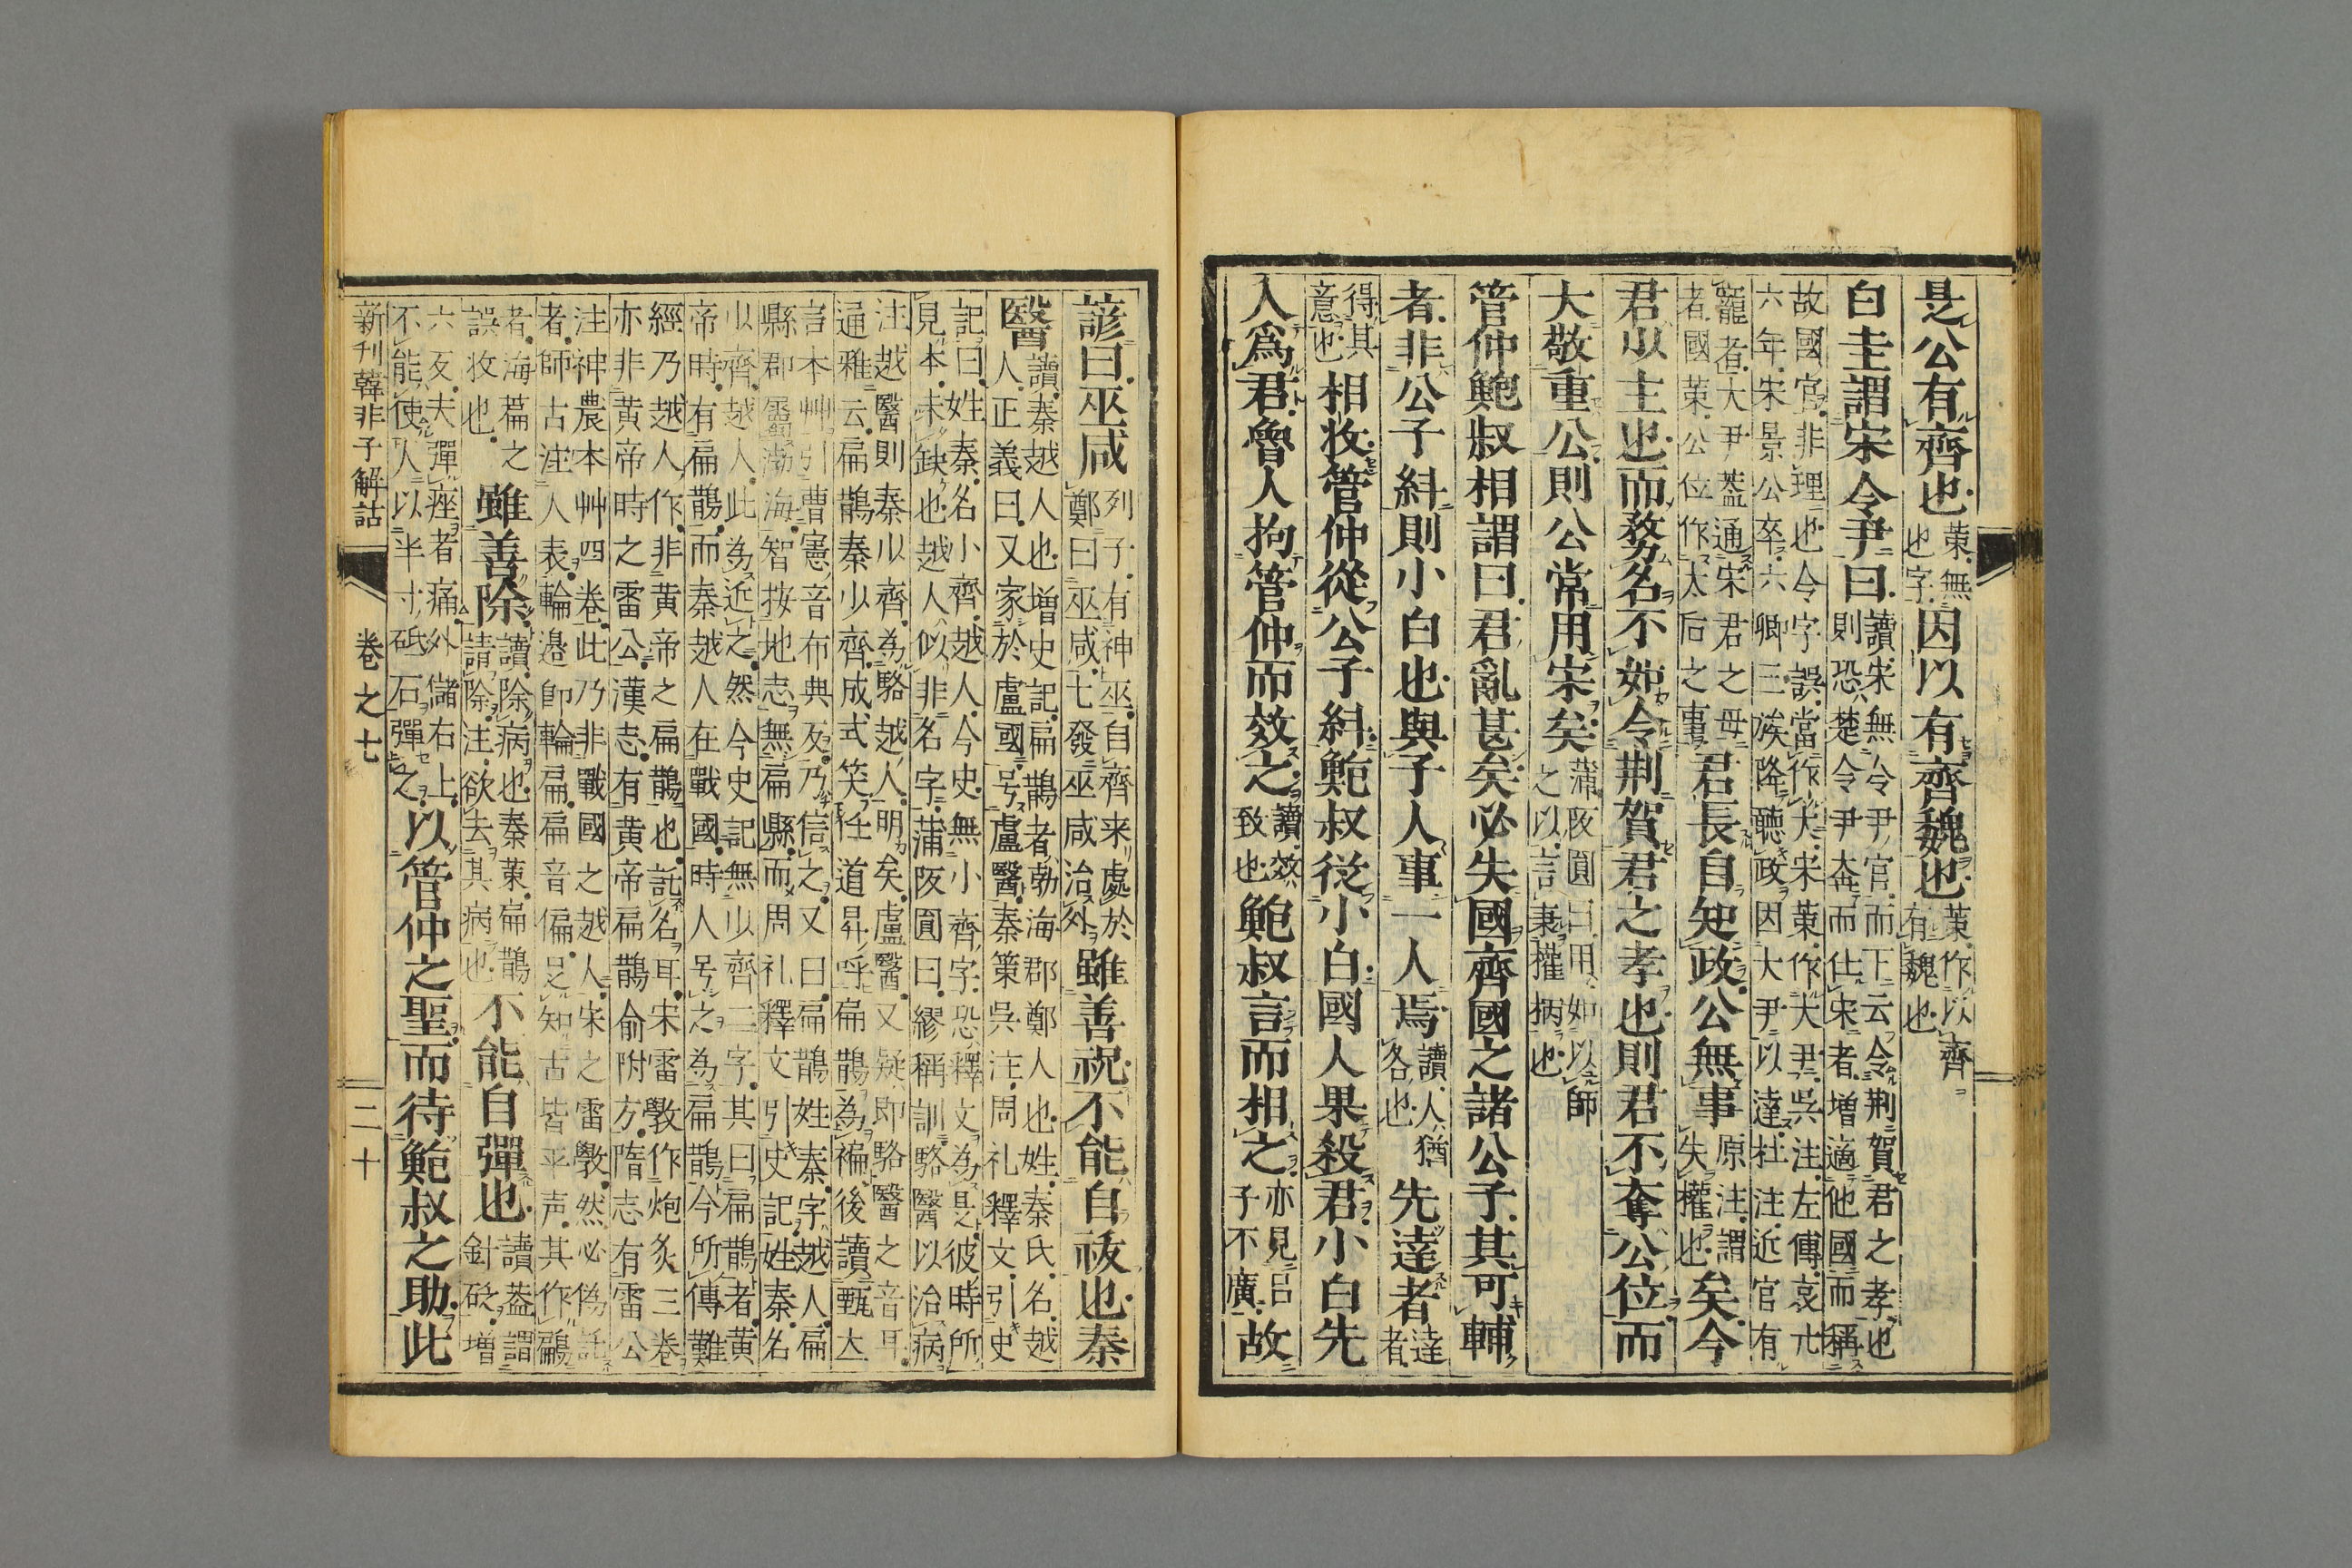 是公有齊也策無
也字因以有齊魏也策作以齊
有魏也
白圭謂宋令尹曰讀宋無令尹官而下云令荆賀君之孝也
則恐楚令尹奔而仕宋者増適他國而稱
故國官非理也令字誤當作大宋策作大尹呉注左傳哀廿
六年宋景公卒六卿三族降聽政因大尹以達杜注近官有
寵者大尹葢通宋君之母
者國策公位作太后之事君長自知政公無事原注謂
失權也矣今
君少主也而務名不如令荆賀君之孝也則君不奪公位而
大敬重公則公常用宋矣蒲阪圓曰用如以師
之以言秉權柄也
管仲鮑叔相謂曰君亂甚矣必失國齊國之諸公子其可輔
者非公子糾則小白也與子人事一人焉讀人猶
各也先達者達
者
得其
意也相收管仲從公子糾鮑叔従小白國人果殺君小白先
入爲君魯人拘管仲而效之讀效
致也鮑叔言而相之亦見呂
子不廣故
諺曰巫咸列子有神巫自齊来處於
鄭曰巫咸七發巫咸治外雖善祝不能自祓也秦
醫讀秦越人也増史記扁鵲者勃海郡鄭人也姓秦氏名越
人正義曰又家於盧國号盧醫秦策呉注周礼釋文引史
記曰姓秦名小齊越人今史無小齊字恐釋文為是彼時所
見本未缺也越人似非名字蒲阪圓曰繆稱訓駱醫以治病
注越醫則秦以齊為駱越人明矣盧醫又疑即駱醫之音耳
通雅云扁鵲秦少齊成式笑任道昇呼扁鵲為褊後讀甄太
言本艸引曹憲音布典反乃信之又曰扁鵲姓秦字越人扁
縣郡屬渤海智按地志無扁縣而周礼釋文引史記姓秦名
少齊越人此為近之然今史記無少齊二字其曰扁鵲者黄
帝時有扁鵲而秦越人在戰國時人号之為扁鵲今所傳難
經乃越人作非黄帝之扁鵲也託名耳宋雷斆作炮炙三卷
亦非黄帝時之雷公漢志有黄帝扁鵲俞附方隋志有雷公
注神農本艸四卷此乃非戰國之越人宋之雷斆然必偽託
者師古注人表輪邉即輪扁扁音偏足知古皆平声其作鶣
者海篇之
誤收也雖善除讀除病也秦策扁鵲
請除注欲去其病也不能自彈也讀葢謂
針砭増
六反夫彈痤者痛外儲右上
不能使人以半寸砥石彈之以管仲之聖而待鮑叔之助此
新刊韓非子解詁 卷之七 二十